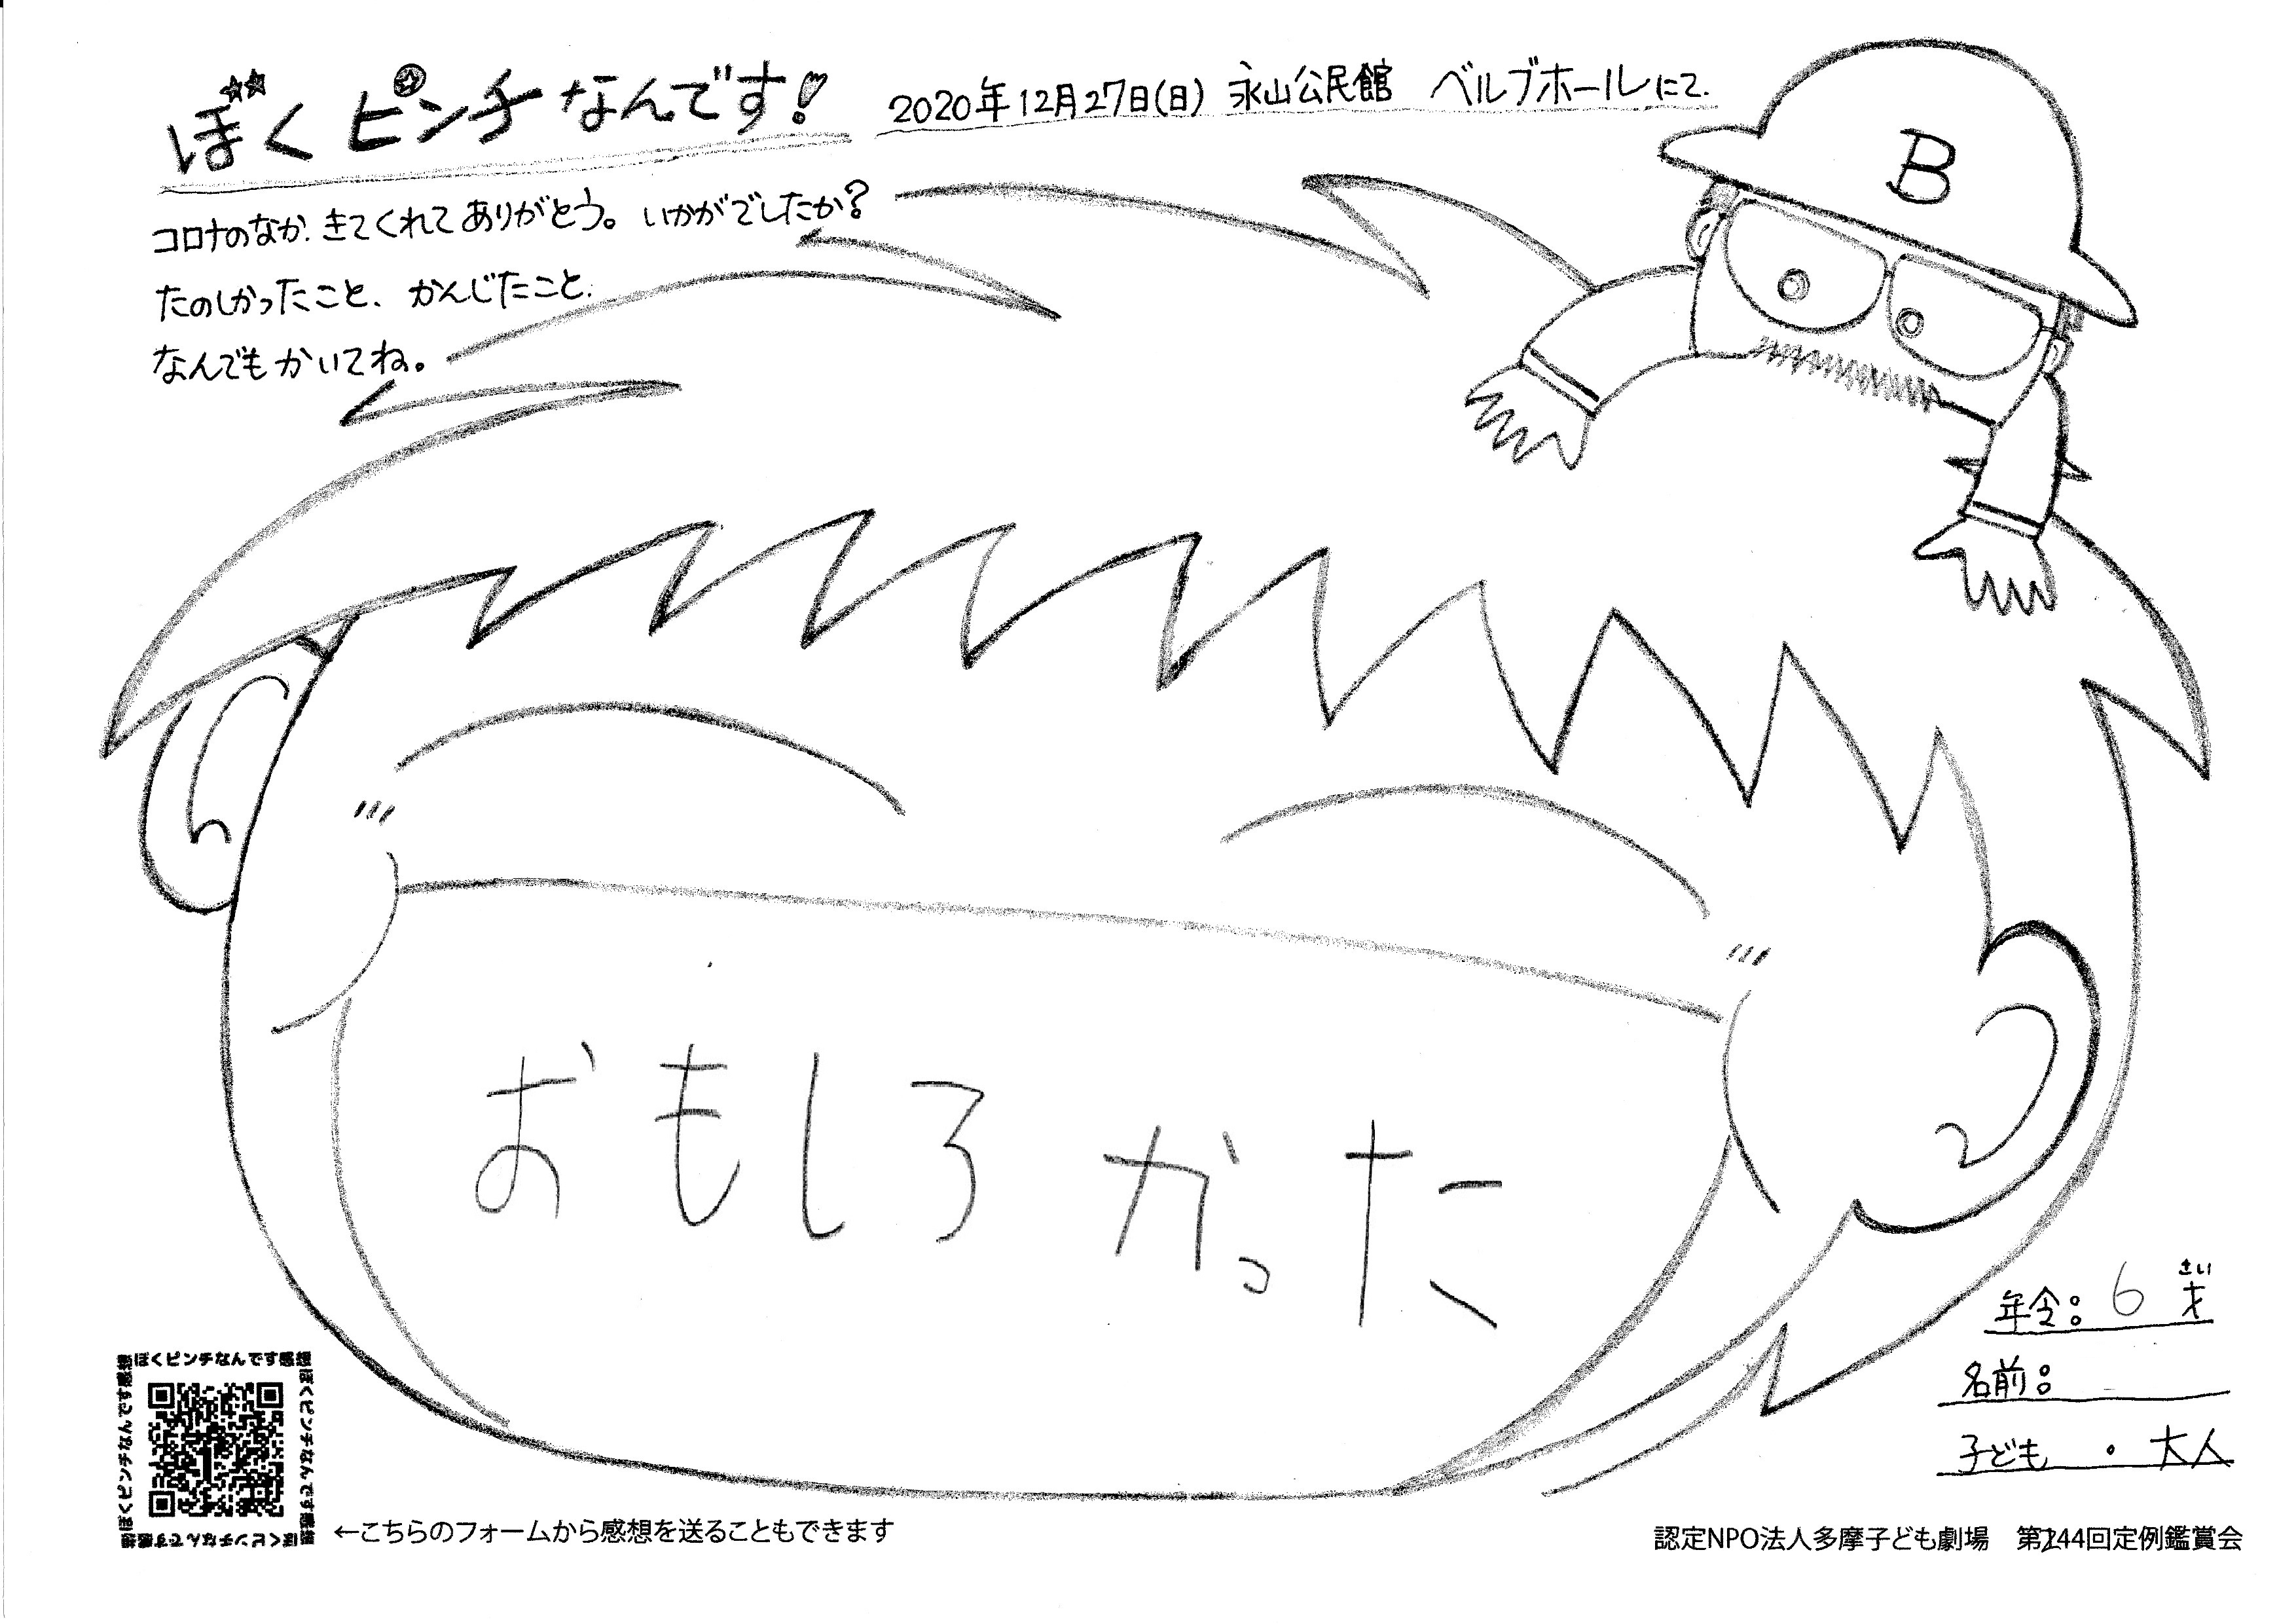 ぼくピンチなんです!
2020年12月27日(日) 永山公民館 ベルブホールにて.
コロナのなか、きてくれてありがとう。いかがでしたか?
たのしかったこと、かんじたこと、
なんでもかいてね。
B
おもしろかった
さい
年令:6才
名前:
子ども・大人
ぼくピンチなんです感想
ぼくピンチなんです感想
ぼくピンチなんです感想
ぼくピンチなんです感想
←こちらのフォームから感想を送ることもできます
認定NPO法人多摩子ども劇場 第244回定例鑑賞会